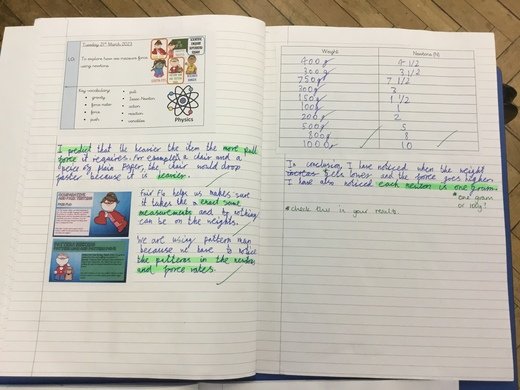 Tuesday 21st March 2023
LO:
To explore how we measure force
using newtons.
Key vocabulary
gravity
force meter
force
push
pull
Isaac Newton
action
reaction
variables
Physics
I predict that the heavier the item the more pull
force it requires. For example, a chair and a
piece of plain paper, the chair would drop
faster because it is heavier.
Fair Flo helps us makes sure
it takes the exact same
measurements and to nothing
can be on the weights.
We are using pattern
because we have to notice
the patterns in the newton
and force rates.
Weight
Newtons (N)
400g
4 1/2
300g
3 1/2
750g
7 1/2
300g
3
150g
1 1/2
100g
1
200g
2
500g
5
800g
8
1000g
10
In conclusion, I have noticed when the weight
gets lower and the force goes higher.
I have also noticed each newton is one gram.
*one gram
or 100g?
*check this is your results.